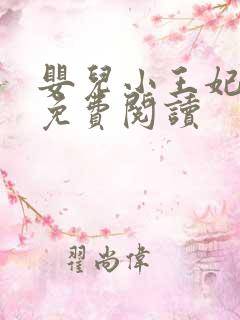 嬰兒小王妃
免費閱讀
翟尚偉